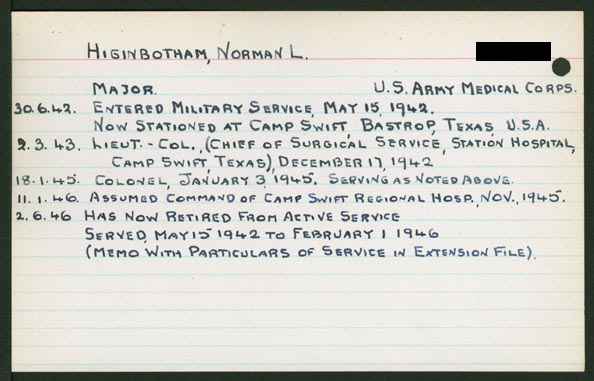 HIGINBOTHAM, NORMAN L.
MAJOR. U.S. ARMY MEDICAL CORPS.
30.6.42. ENTERED MILITARY SERVICE, MAY 15, 1942.
NOW STATIONED AT CAMP SWIFT, BASTROP, TEXAS, U.S.A.
2.3.43. LIEUT.-COL., (CHIEF OF SURGICAL SERVICE, STATION HOSPITAL,
CAMP SWIFT, TEXAS), DECEMBER 17, 1942
18.1.45. COLONEL, JANUARY 3, 1945. SERVING AS NOTED ABOVE.
11.1.46. ASSUMED COMMAND OF CAMP SWIFT REGIONAL HOSP., NOV., 1945.
2.6.46 HAS NOW RETIRED FROM ACTIVE SERVICE
SERVED, MAY 15 1942 TO FEBRUARY 1 1946
(MEMO WITH PARTICULARS OF SERVICE IN EXTENSION FILE).